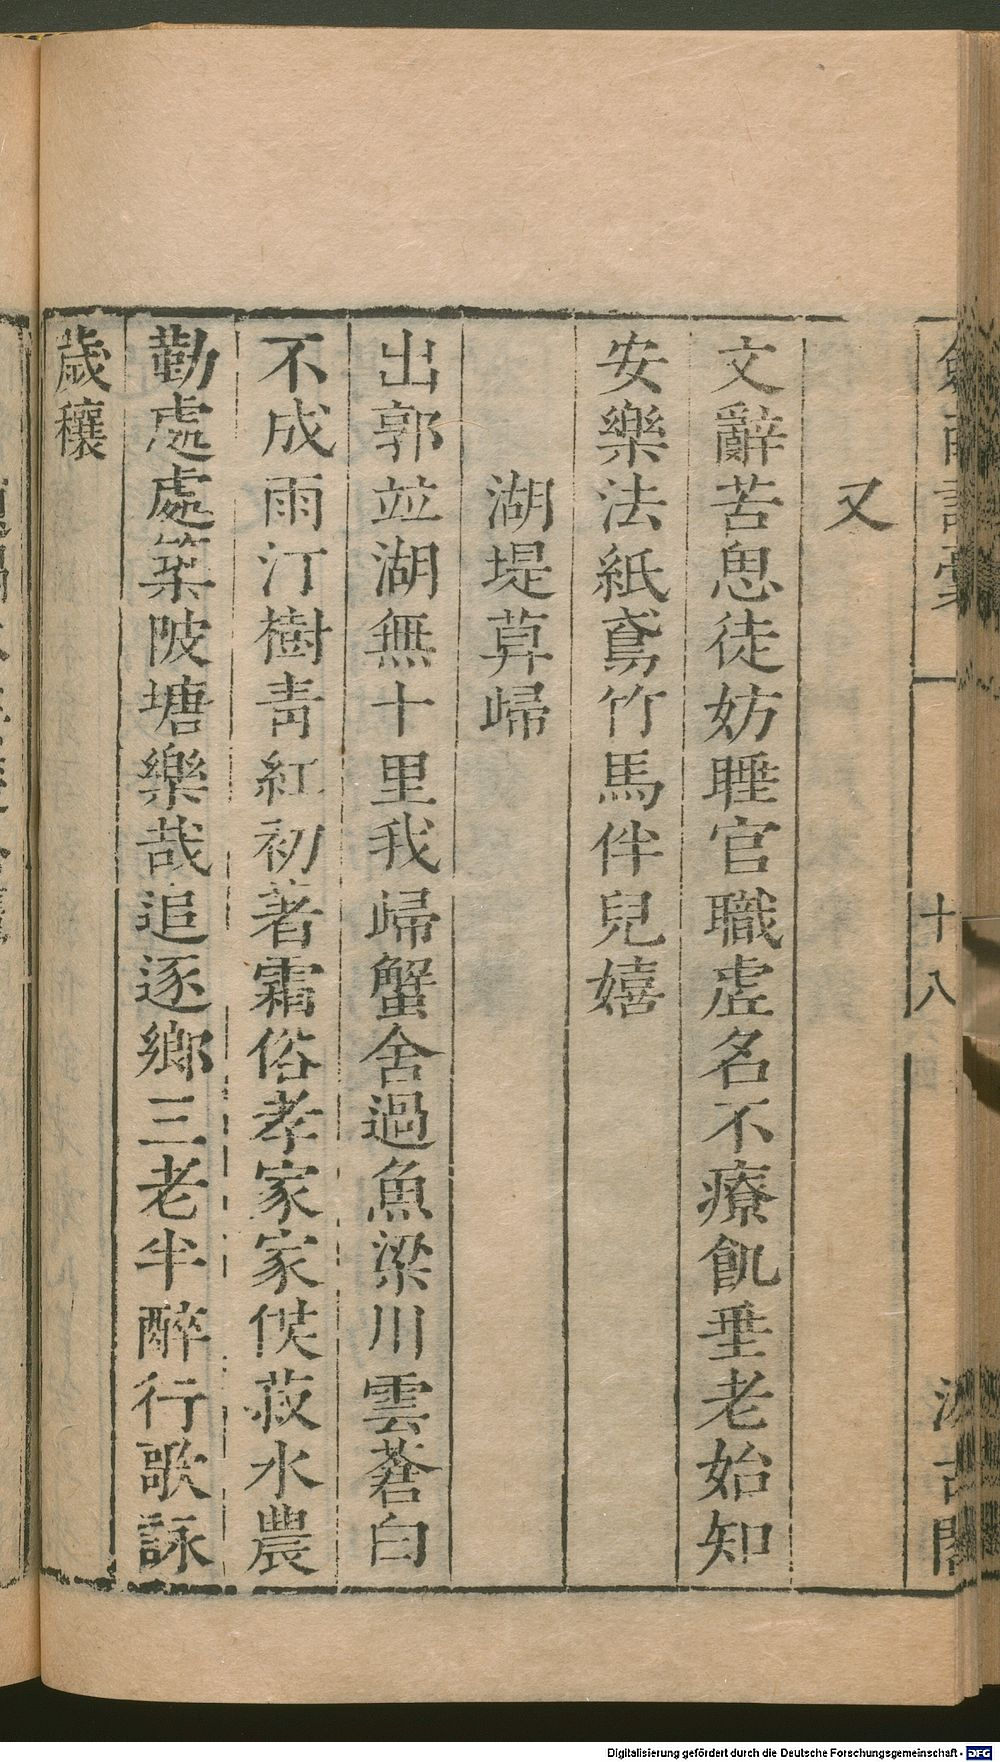 劍南詩稾 十八 汲古閣
又
文辭苦思徒妨睡官職虛名不療飢垂老始知
安樂法紙鳶竹馬伴兒嬉
湖堤暮歸
出郭竝湖無十里我歸蟹舍過魚梁川雲蒼白
不成雨汀樹青紅初著霜俗孝家家供菽水農
勤處處築陂塘樂哉追逐鄉三老半醉行歌詠
歲穰
Digitalisierung gefördert durch die Deutsche Forschungsgemeinschaft - DFG